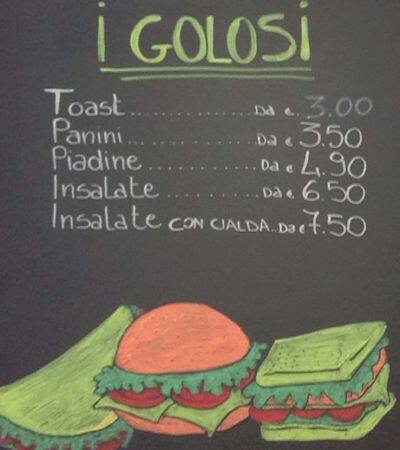 I GOLOSI
Toast.............. Da €. 3.00
Panini............. Da € 3.50
Piadine............ Da € 4.90
Insalate........... Da €. 6.50
Insalate CON CIALDA.. Da € 7.50